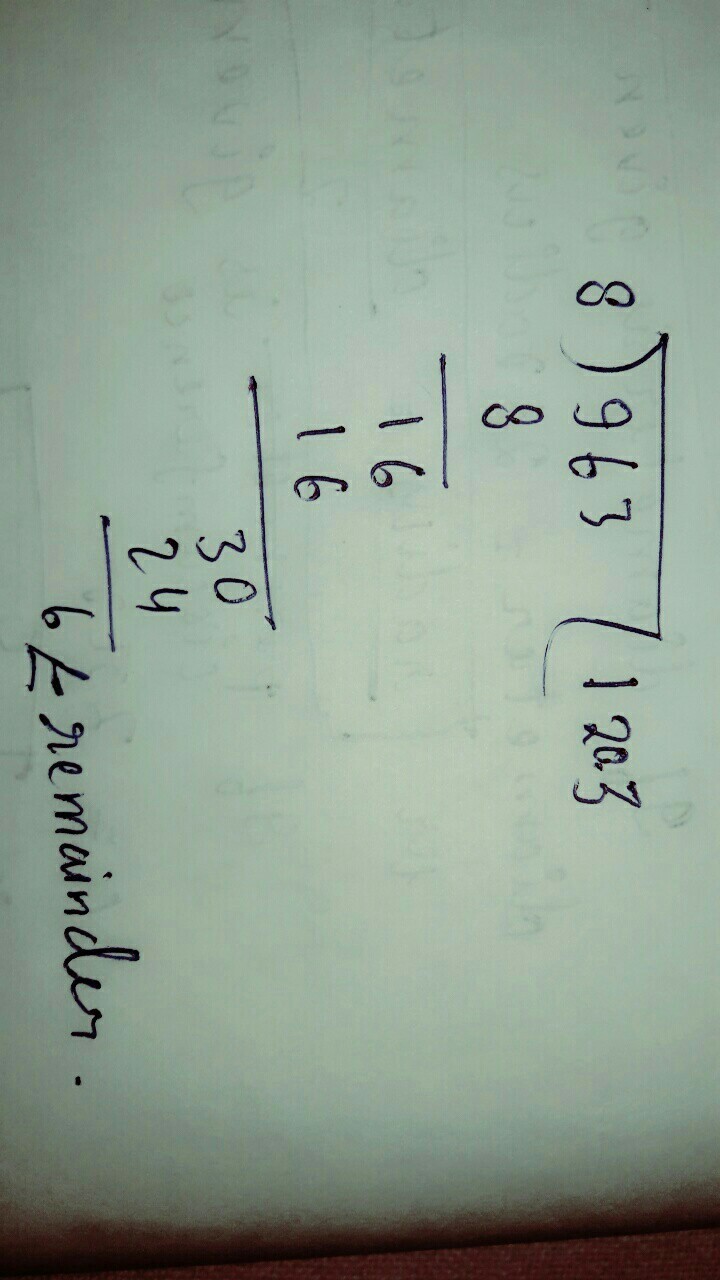 8)963(120.3
8
16
16
30
24
6 ← remainder.